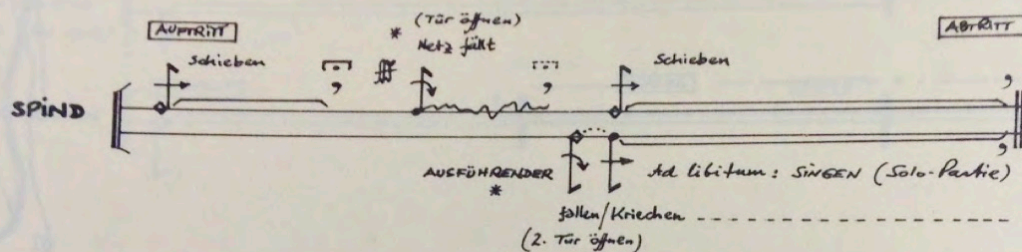 AUFTRITT
(Tür öffnen)
* Netz fällt
ABTRITT
Schieben
Schieben
SPIND
AUSFÜHRENDER
*
Ad libitum: SINGEN (Solo-Partie)
fallen/Kriechen
(2. Tür öffnen)